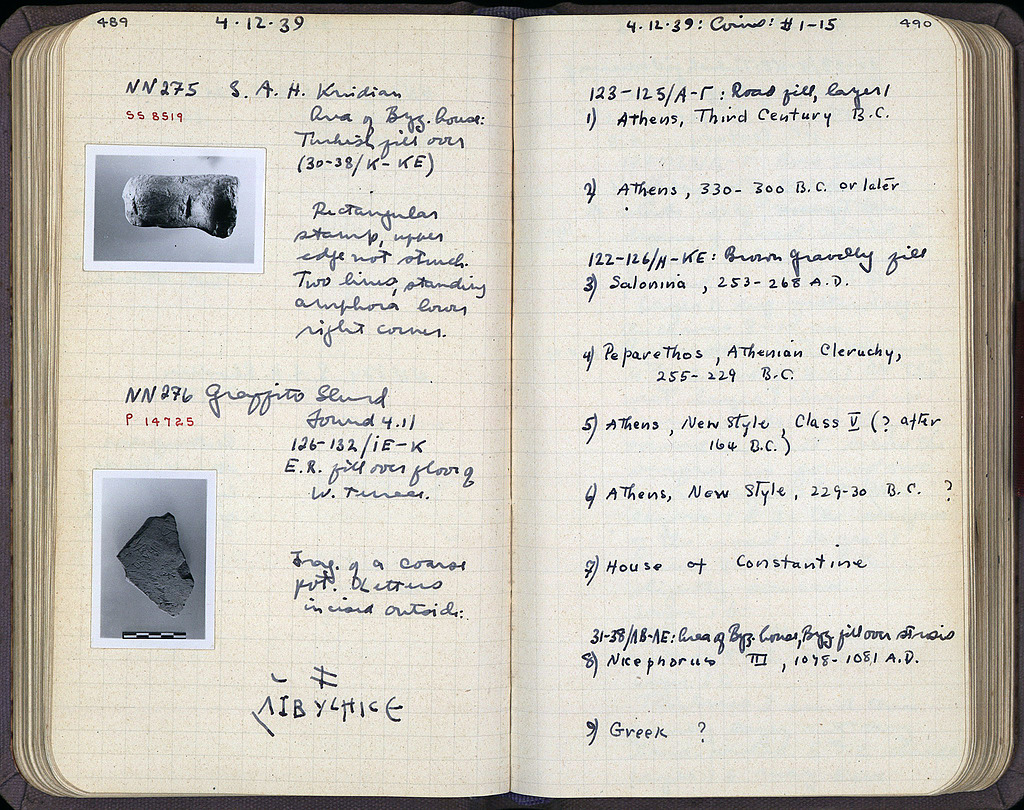 489
4·12·39
NN275 S. A. H. Knidian
SS 8519
Area of Byz. house:
Turkish fill over
(30-38/K-KE)
Rectangular
stamp, upper
edge not struck.
Two lines, standing
amphora lower
right corner.
NN276 Graffito Sherd
P 14725
Found 4.11
126-132/IE-K
E.R. fill over floor of
W. Terrace.
Frag. of a coarse
pot. Letters
incised outside:
ΛΙΒΥCΗΙCΕ
4·12·39: Coins: #1-15
490
123-125/Α-Γ: Road fill, layer 1
1) Athens, Third Century B.C.
2) Athens, 330-300 B.C. or later
122-126/H-KE: Brown gravelly fill
3) Salonina, 253-268 A.D.
4) Peparethos, Athenian Cleruchy,
255-229 B.C.
5) Athens, New Style, Class V (? after
164 B.C.)
6) Athens, New Style, 229-30 B.C. ?
7) House of Constantine
31-38/ΛΒ-ΛΕ: Area of Byz. house, Byz fill over
8) Nicephorus III, 1078-1081 A.D.
9) Greek ?